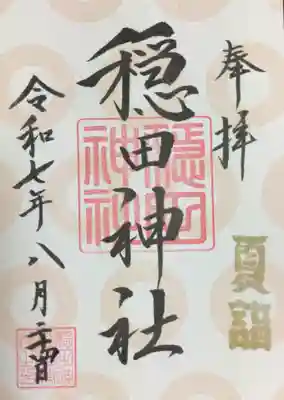 奉拝
夏詣
穏田神社
穏田神社
令和七年八月二十四日